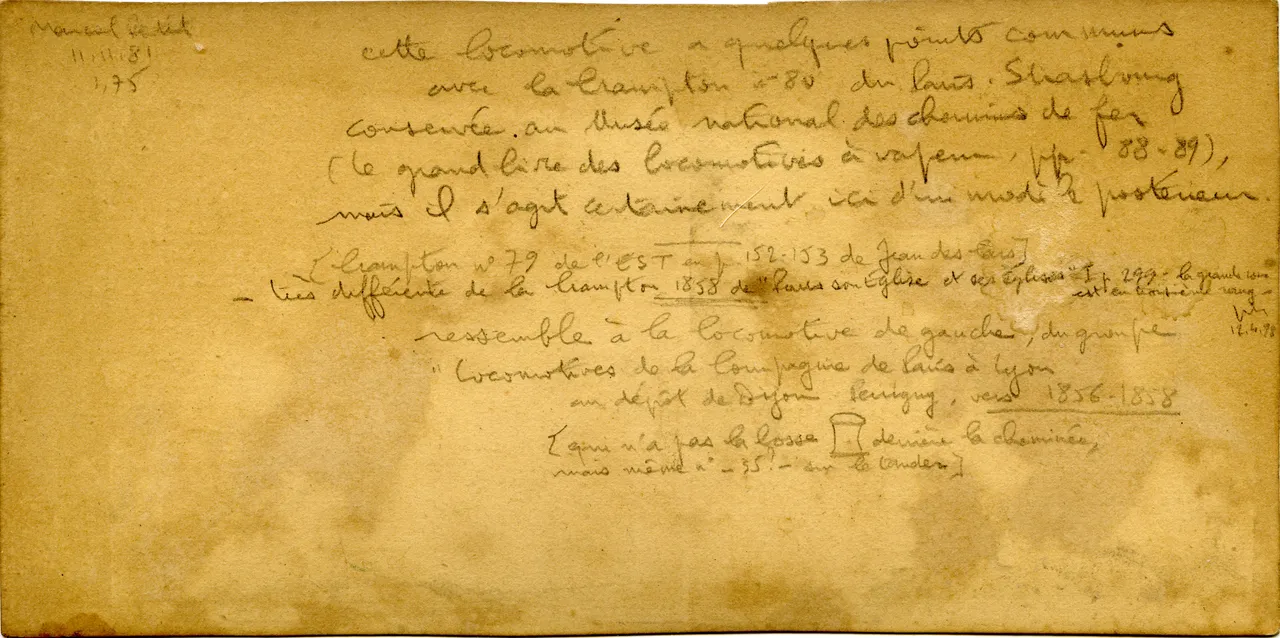 Marcel Petit
11.11.81
1,75
cette locomotive a quelques points communs
avec la Crampton n° 80 du Paris. Strasbourg
conservée au Musée national des chemins de fer
(le grand livre des locomotives à vapeur, pp. 88-89),
mais il s'agit certainement ici d'un modèle postérieur.
[Crampton n° 79 de l'EST en p. 152-153 de Jean des Cars]
- très différente de la Crampton 1858 de "Paris son Eglise et ses églises" I p. 299 - la grande roue
est en troisième rang -
12.4.98
ressemble à la locomotive de gauche, du groupe
"Locomotives de la Compagnie de Paris à Lyon
au dépôt de Dijon Perrigny, vers 1856-1858
[qui n'a pas la bosse derrière la cheminée,
mais même n° - 35! - sur le tender]